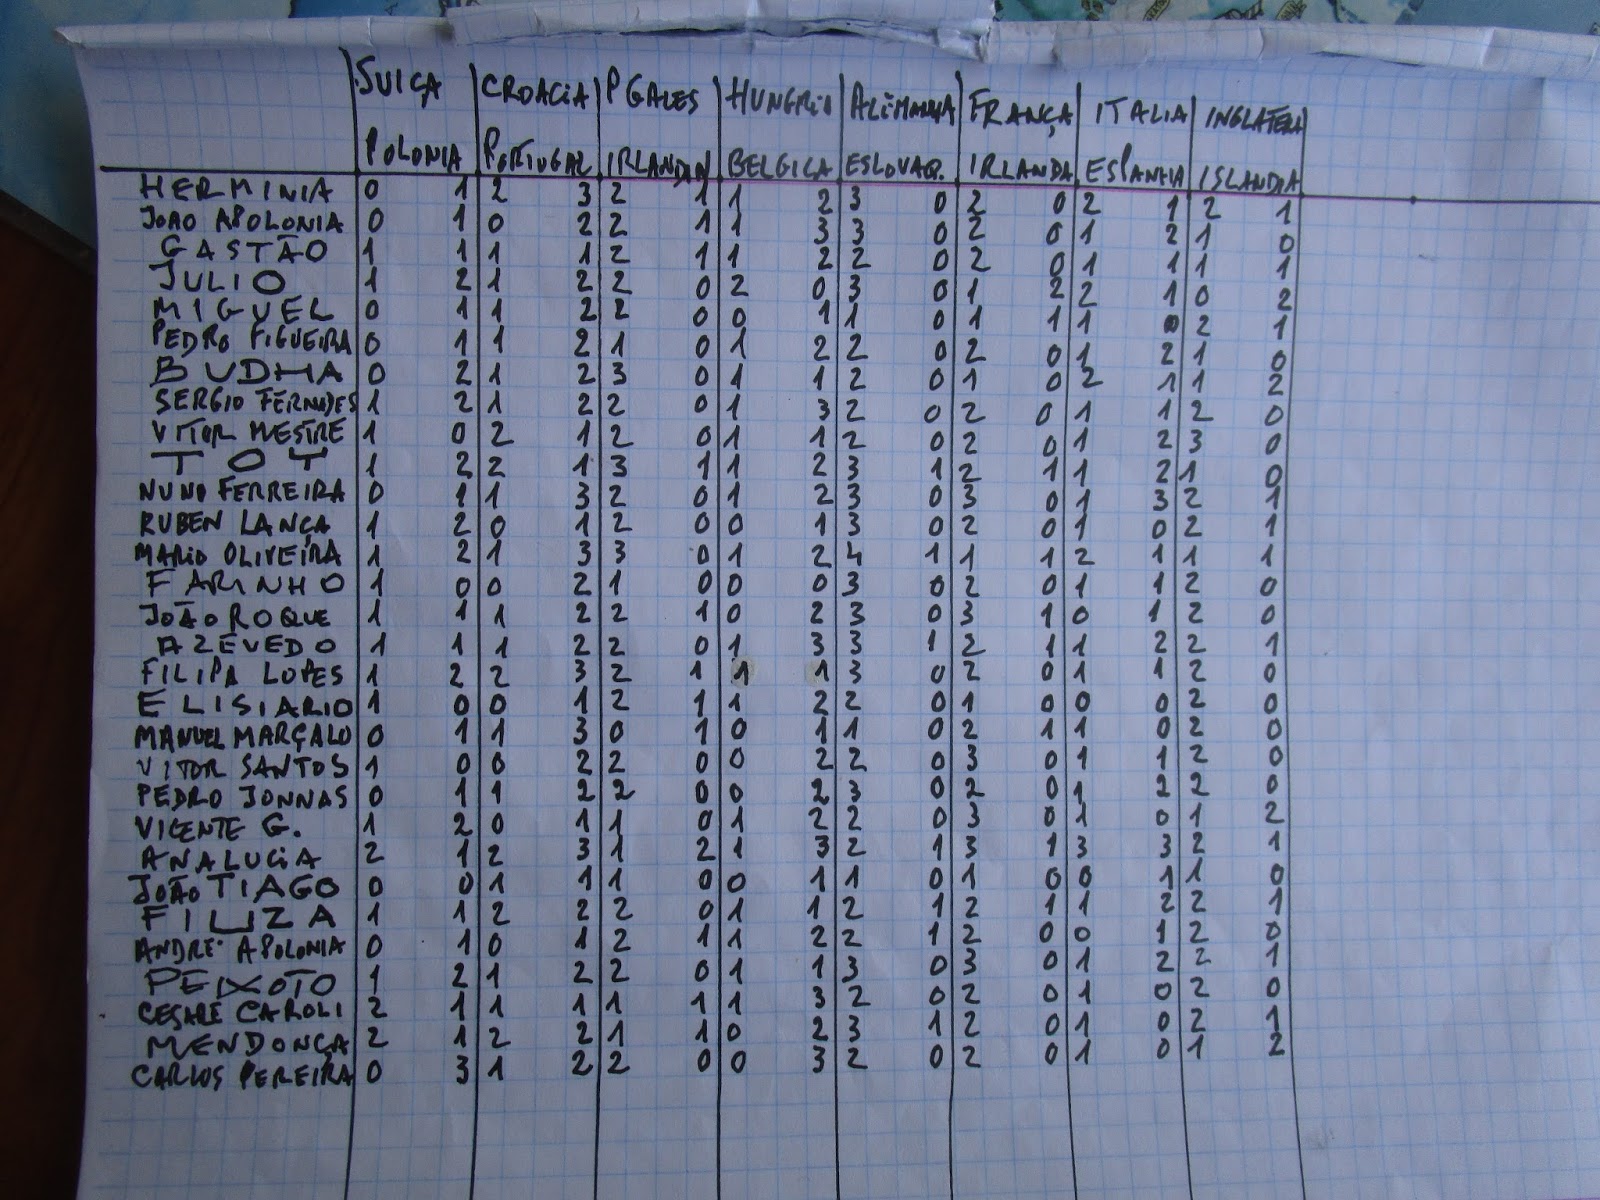 SUIÇA CROACIA P GALES HUNGRIA ALEMANHA FRANÇA ITALIA INGLATERA
POLONIA PORTUGAL IRLANDA N BELGICA ESLOVAQ. IRLANDA ESPANHA ISLANDIA
HERMINIA 0 1 2 3 2 1 1 2 3 0 2 0 2 1 2 1
JOAO APOLONIA 0 1 0 2 2 1 1 3 3 0 2 0 1 2 1 0
GASTÃO 1 1 1 1 2 1 1 2 2 0 2 0 1 1 1 1
JULIO 1 2 1 2 2 0 2 0 3 0 1 2 2 1 0 2
MIGUEL 0 1 1 2 2 0 0 1 1 0 1 1 1 0 2 1
PEDRO FIGUEIRA 0 1 1 2 1 0 1 2 2 0 2 0 1 2 1 0
BUDHA 0 2 1 2 3 0 1 1 2 0 1 0 2 1 1 2
SERGIO FERNADES 1 2 1 2 2 0 1 3 2 0 2 0 1 1 2 0
VITOR MESTRE 1 0 2 1 2 0 1 1 2 0 2 0 1 2 3 0
TOY 1 2 2 1 3 1 1 2 3 1 2 1 1 2 1 0
NUNO FERREIRA 0 1 1 3 2 0 1 2 3 0 3 0 1 3 2 1
RUBEN LANÇA 1 2 0 1 2 0 0 1 3 0 2 0 1 0 2 1
MARIO OLIVEIRA 1 2 1 3 3 0 1 2 4 1 1 1 2 1 1 1
FARINHO 1 0 0 2 1 0 0 0 3 0 2 0 1 1 2 0
JOÃO ROQUE 1 1 1 2 2 1 0 2 3 0 3 1 0 1 2 0
AZEVEDO 1 1 1 2 2 0 1 3 3 1 2 1 1 2 2 1
FILIPA LOPES 1 2 2 3 2 1 1 1 3 0 2 0 1 1 2 0
ELISIARIO 1 0 0 1 2 1 1 2 2 0 1 0 0 0 2 0
MANUEL MARÇALO 0 1 1 3 0 1 0 1 1 0 2 1 1 0 2 0
VITOR SANTOS 1 0 0 2 2 0 0 2 2 0 3 0 1 1 2 0
PEDRO JONNAS 0 1 1 2 2 0 0 2 3 0 2 0 1 2 2 0
VICENTE G. 1 2 0 1 1 0 1 2 2 0 3 0 1 0 1 2
ANALUCIA 2 1 2 3 1 2 1 3 2 1 3 1 3 3 2 1
JOÃO TIAGO 0 0 1 1 1 0 0 1 1 0 1 0 0 1 1 0
FILIZA 1 1 2 2 2 0 1 1 2 1 2 1 1 2 2 1
ANDRE APOLONIA 0 1 0 1 2 1 1 2 2 1 2 0 0 1 2 0
PEIXOTO 1 2 1 2 2 0 1 1 3 0 3 0 1 2 2 1
CESARE CAROLI 2 1 1 1 1 1 1 3 2 0 2 0 1 0 2 0
MENDONÇA 2 1 2 2 1 1 0 2 3 1 2 0 1 0 2 1
CARLOS PEREIRA 0 3 1 2 2 0 0 3 2 0 2 0 1 0 1 2